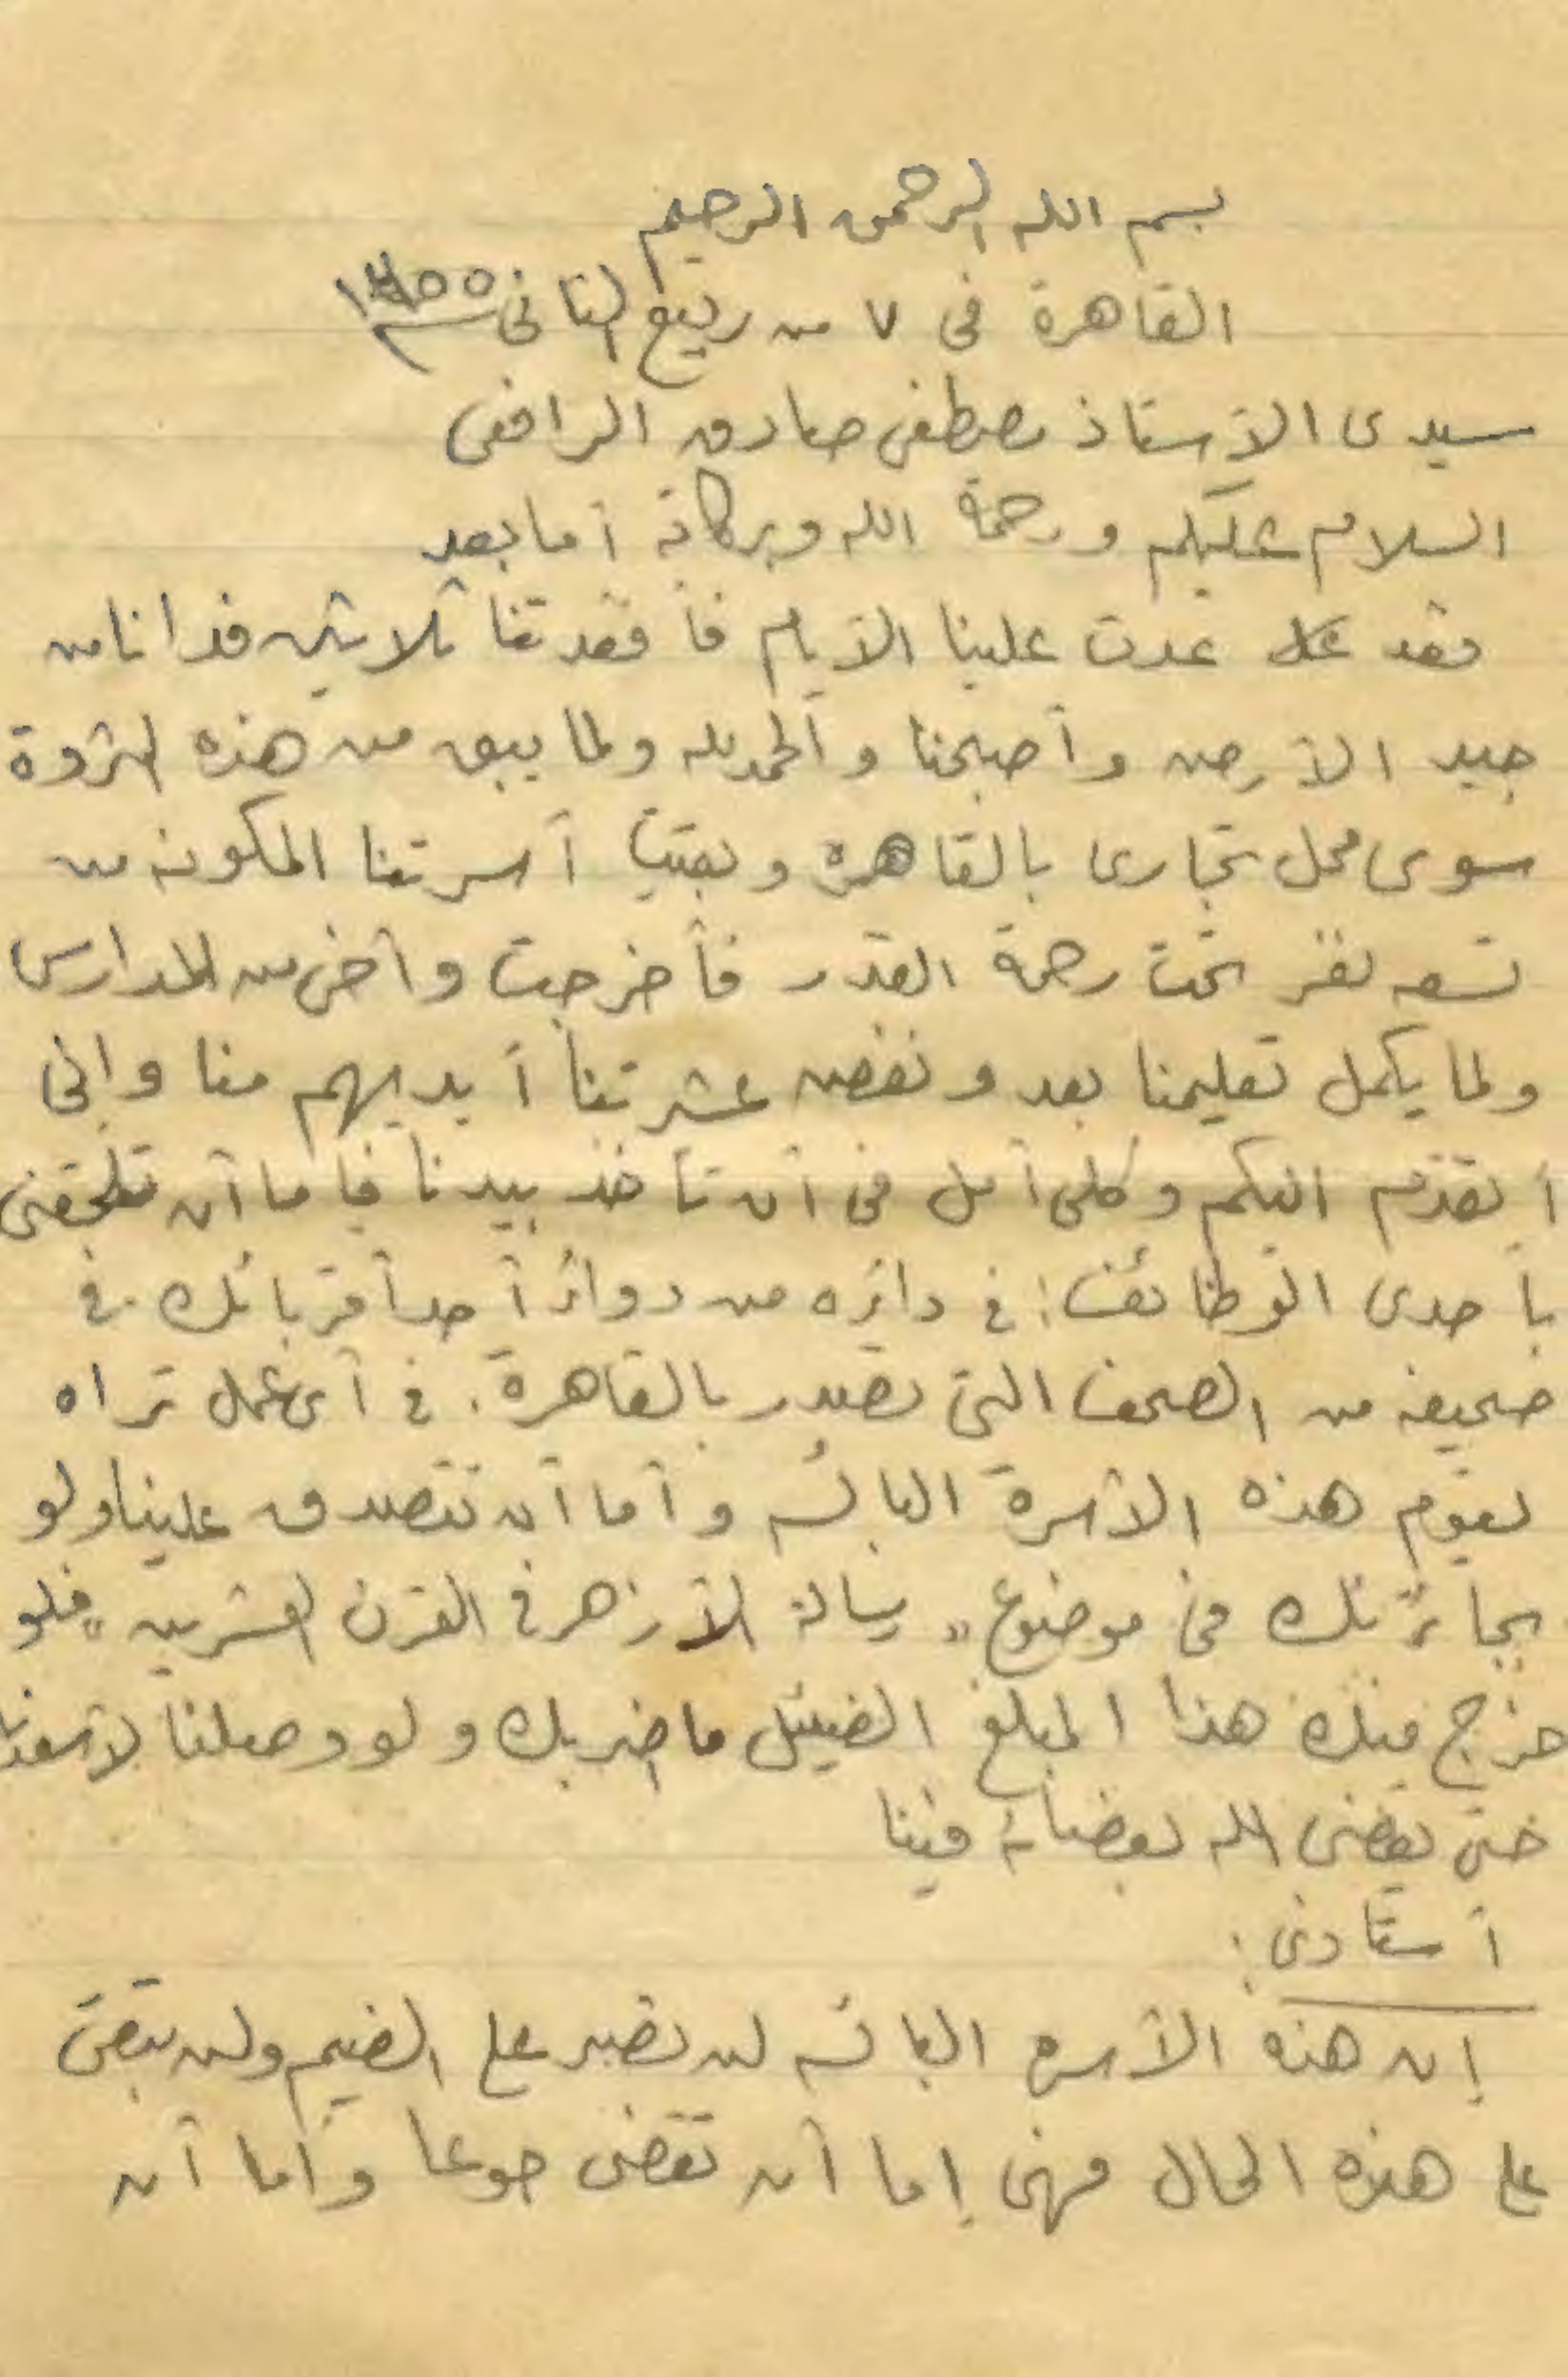 بسم الله الرحمن الرحيم
القاهرة فى ٧ من ربيع الثانى سنة ١٣٥٥
سيدى الأستاذ مصطفى صادق الرافعى
السلام عليكم ورحمة الله وبركاته أما بعد
فقد عدت علينا الأيام فأفقدتنا ثلاثين فدانا من
جيد الأرض وأصبحنا والحمد لله ولما يبق من هذه الثروة
سوى محل تجارى بالقاهرة وبقيت أسرتنا المكونه من
تسعه نفر تحت رحمة القدر فأخرجت وأخى من المدارس
ولما يكمل تعليمنا بعد ونفض عشرتنا أيديهم منا وإنى
أتقدم اليكم وكلى أمل فى أن تأخذ بيدنا فإما أن تلحقنى
بأحدى الوظائف: فى دائره من دوائر أحد أقربائك. فى
صحيفه من الصحف التى تصدر بالقاهرة. فى أى عمل تراه
لقوم هذه الأسرة البائسه وأما أن تتصدق علينا ولو
بجائزتك فى موضوع "رسالة الأزهر فى القرن العشرين" فلو
خرج منك هذا المبلغ الضيئل ما اضر بك ولو وصلنا لأسعدنا
حتى يقضى الله بقضائه فينا
أستاذى:
إن هذه الأسره البائسه لن تصبر على الضيم ولن تبقى
على هذه الحال فهى إما أن تقضى جوعا وأما أن